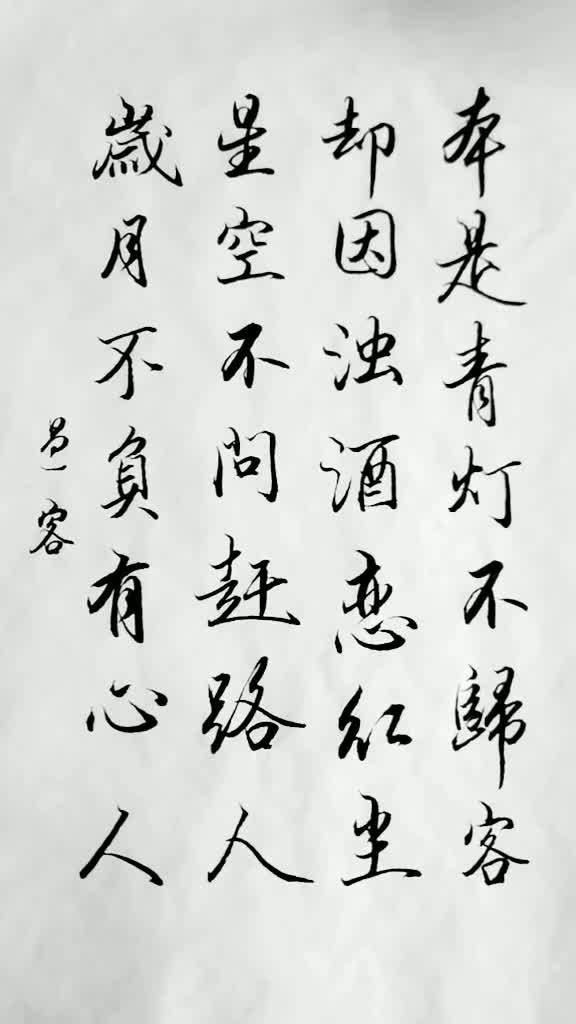 本是青灯不歸客
却因浊酒恋红尘
星空不问赶路人
歲月不负有心人
客